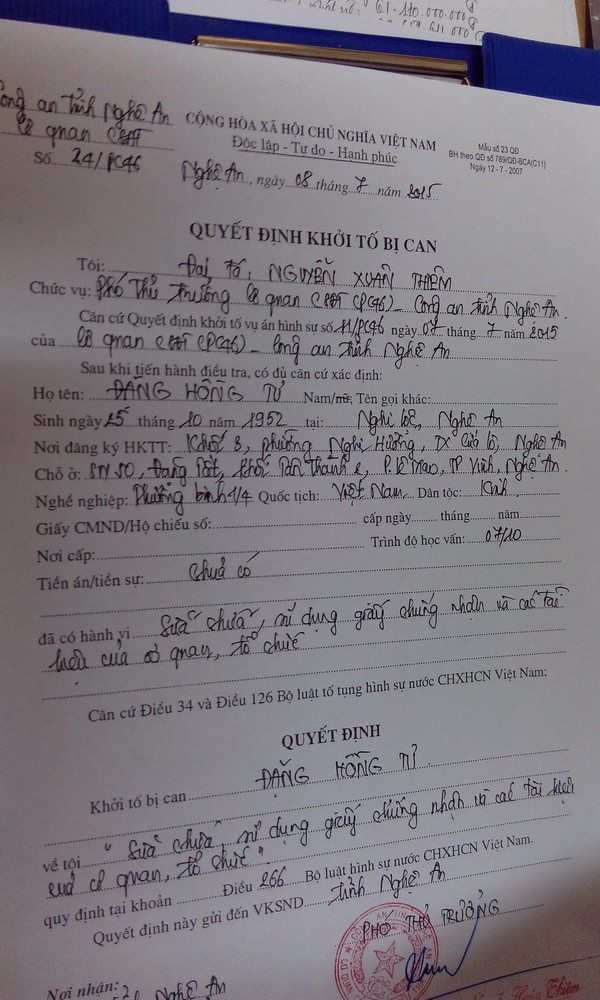 61-110.000.000đ
Công an tỉnh Nghệ An
Cơ quan CSĐT
Số 24/PC46
CỘNG HÒA XÃ HỘI CHỦ NGHĨA VIỆT NAM
Độc lập - Tự do - Hạnh phúc
Mẫu số 23 QĐ
BH theo QĐ số 789/QĐ-BCA(C11)
Ngày 12 - 7 - 2007
Nghệ An, ngày 08 tháng 7 năm 2015
QUYẾT ĐỊNH KHỞI TỐ BỊ CAN
Tôi: Đại tá, NGUYỄN XUÂN THIÊM
Chức vụ: Phó Thủ trưởng Cơ quan CSĐT (PC46) - Công an tỉnh Nghệ An.
Căn cứ Quyết định khởi tố vụ án hình sự số /PC46 ngày 07 tháng 7 năm 2015
của Cơ quan CSĐT (PC46) - Công an tỉnh Nghệ An
Sau khi tiến hành điều tra, có đủ căn cứ xác định:
Họ tên: ĐẶNG HỒNG TƯ Nam/nữ; Tên gọi khác:
Sinh ngày 25 tháng 10 năm 1952 tại: Nghi Lộc, Nghệ An
Nơi đăng ký HKTT: Khối 3, phường Nghi Hương, TX Cửa Lò, Nghệ An
Chỗ ở: SN 50, Đặng Tất, khối Tân Thành 2, P. Lê Mao, TP Vinh, Nghệ An.
Nghề nghiệp: Thương binh 4/4 Quốc tịch: Việt Nam Dân tộc: Kinh
Giấy CMND/Hộ chiếu số: cấp ngày tháng năm
Nơi cấp: Trình độ học vấn: 07/10
Tiền án/tiền sự: Chưa có
đã có hành vi Sửa chữa, sử dụng giấy chứng nhận và các tài
liệu của cơ quan, tổ chức
Căn cứ Điều 34 và Điều 126 Bộ luật tố tụng hình sự nước CHXHCN Việt Nam;
QUYẾT ĐỊNH
Khởi tố bị can ĐẶNG HỒNG TƯ
về tội "Sửa chữa, sử dụng giấy chứng nhận và các tài liệu
của cơ quan, tổ chức".
quy định tại khoản Điều 266 Bộ luật hình sự nước CHXHCN Việt Nam.
Quyết định này gửi đến VKSND Tỉnh Nghệ An
PHÓ THỦ TRƯỞNG
Nơi nhận:
Nghệ An